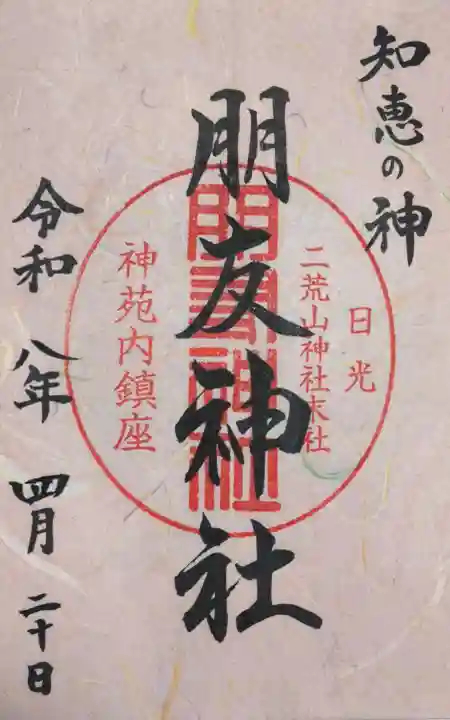 知恵の神
朋友神社
日光
二荒山神社末社
朋友神社
神苑内鎮座
令和八年四月二十日